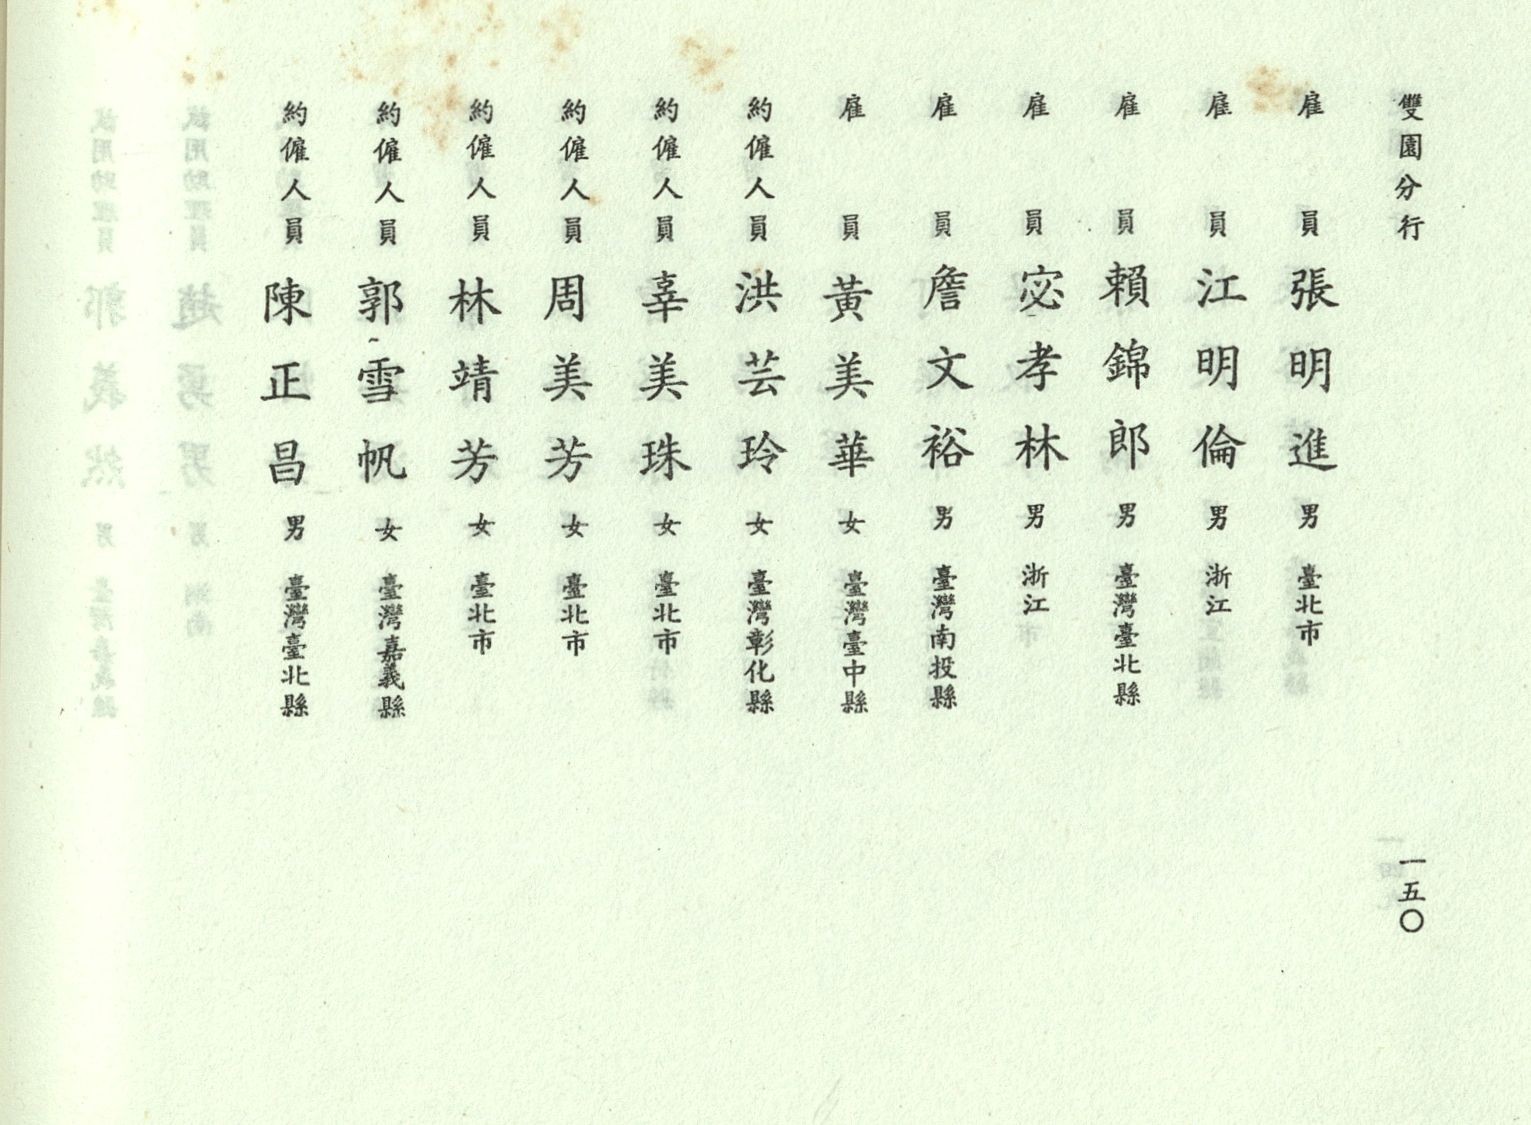 雙園分行 一五〇
雇員 張明進 男 臺北市
雇員 江明倫 男 浙江
雇員 賴錦郎 男 臺灣臺北縣
雇員 宓孝林 男 浙江
雇員 詹文裕 男 臺灣南投縣
雇員 黃美華 女 臺灣臺中縣
約僱人員 洪芸玲 女 臺灣彰化縣
約僱人員 辜美珠 女 臺北市
約僱人員 周美芳 女 臺北市
約僱人員 林靖芳 女 臺北市
約僱人員 郭雪帆 女 臺灣嘉義縣
約僱人員 陳正昌 男 臺灣臺北縣